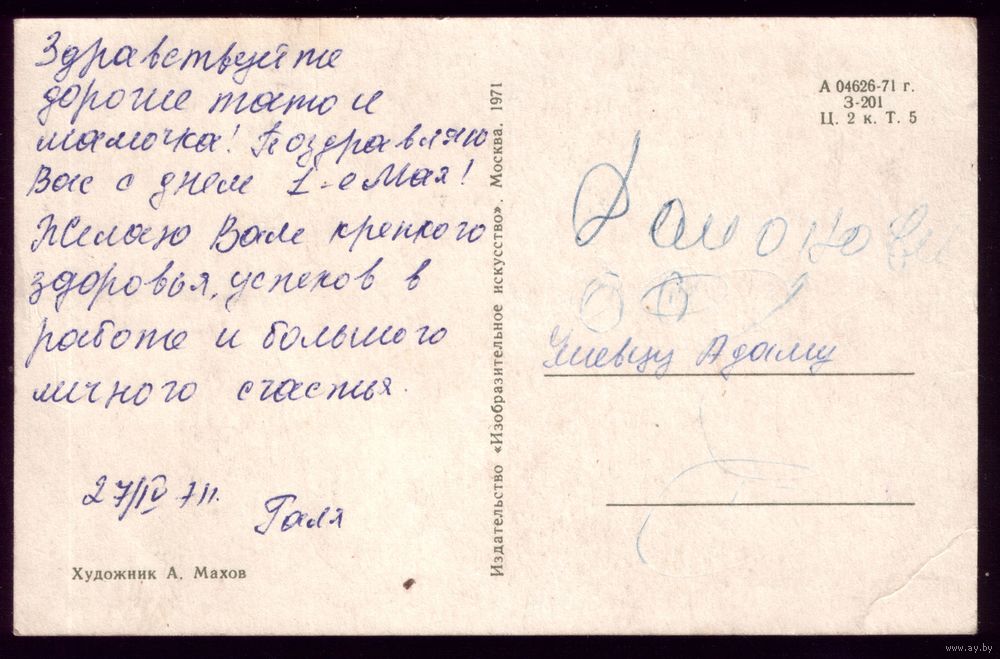 Здравствуйте
дорогие тато и
мамочка! Поздравляю
Вас с днем 1-е Мая!
Желаю Вам крепкого
здоровья, успехов в
работе и большого
личного счастья.
27/IV 71г.
Галя
Художник А. Махов
Издательство «Изобразительное искусство». Москва. 1971
А 04626-71 г.
З-201
Ц. 2 к. Т. 5
Адаму
www.ay.by